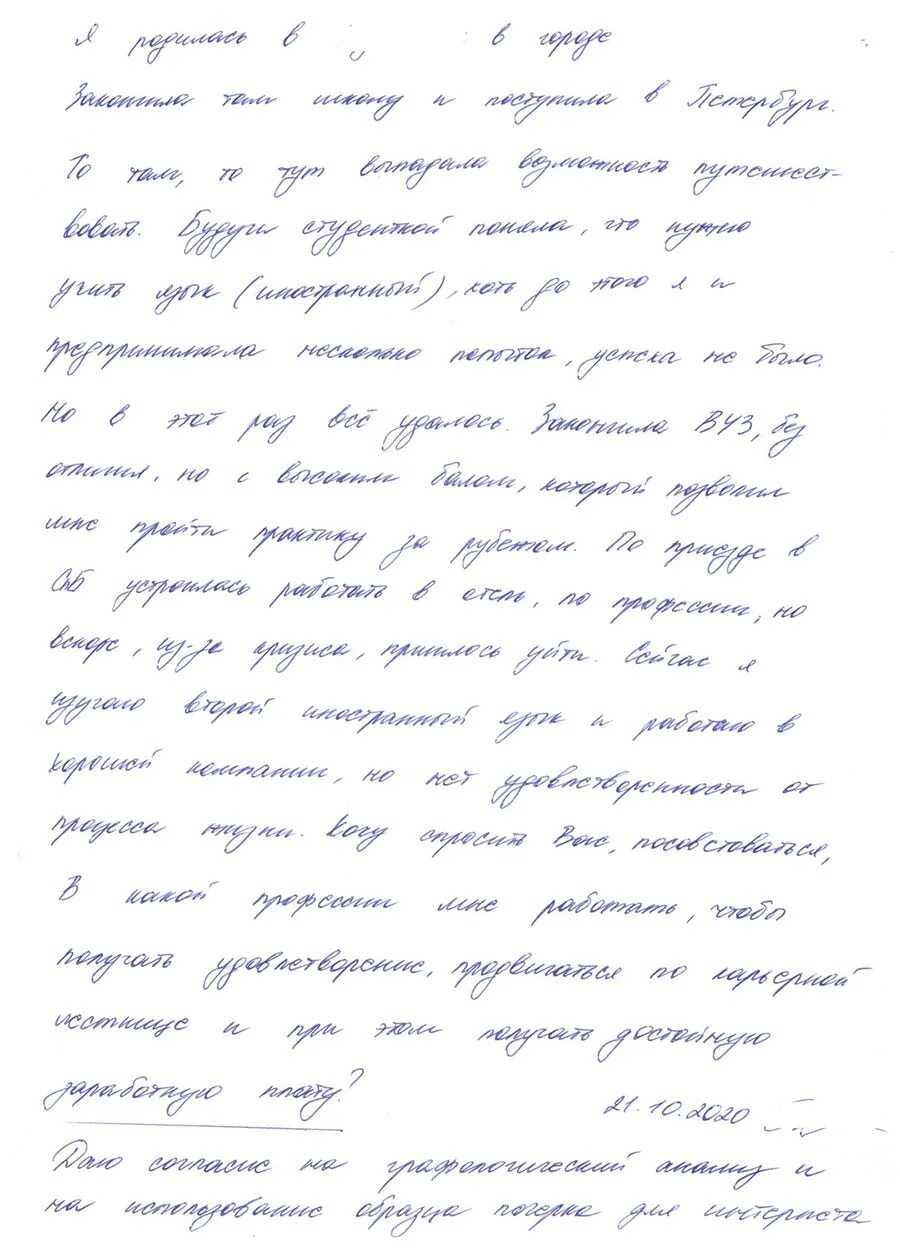 Я родилась в в городе
Закончила там школу и поступила в Петербург.
То там, то тут выпадала возможность путешест-
вовать. Будучи студенткой поняла, что нужно
учить язык (иностранный), хоть до этого я и
предпринимала несколько попыток, успеха не было.
Но в этот раз всё удалось. Закончила ВУЗ, без
отличия, но с высоким балом, который позволил
мне пройти практику за рубежом. По приезде в
СПБ устроилась работать в отель, по профессии, но
вскоре, из-за кризиса, пришлось уйти. Сейчас я
изучаю второй иностранный язык и работаю в
хорошей компании, но нет удовлетворенности от
процесса жизни. Хочу спросить Вас, посоветоваться,
В какой профессии мне работать, чтобы
получать удовлетворение, продвигаться по карьерной
лестнице и при этом получать достойную
заработную плату?
21.10.2020
Даю согласие на графологический анализ и
на использование образца почерка для интернета